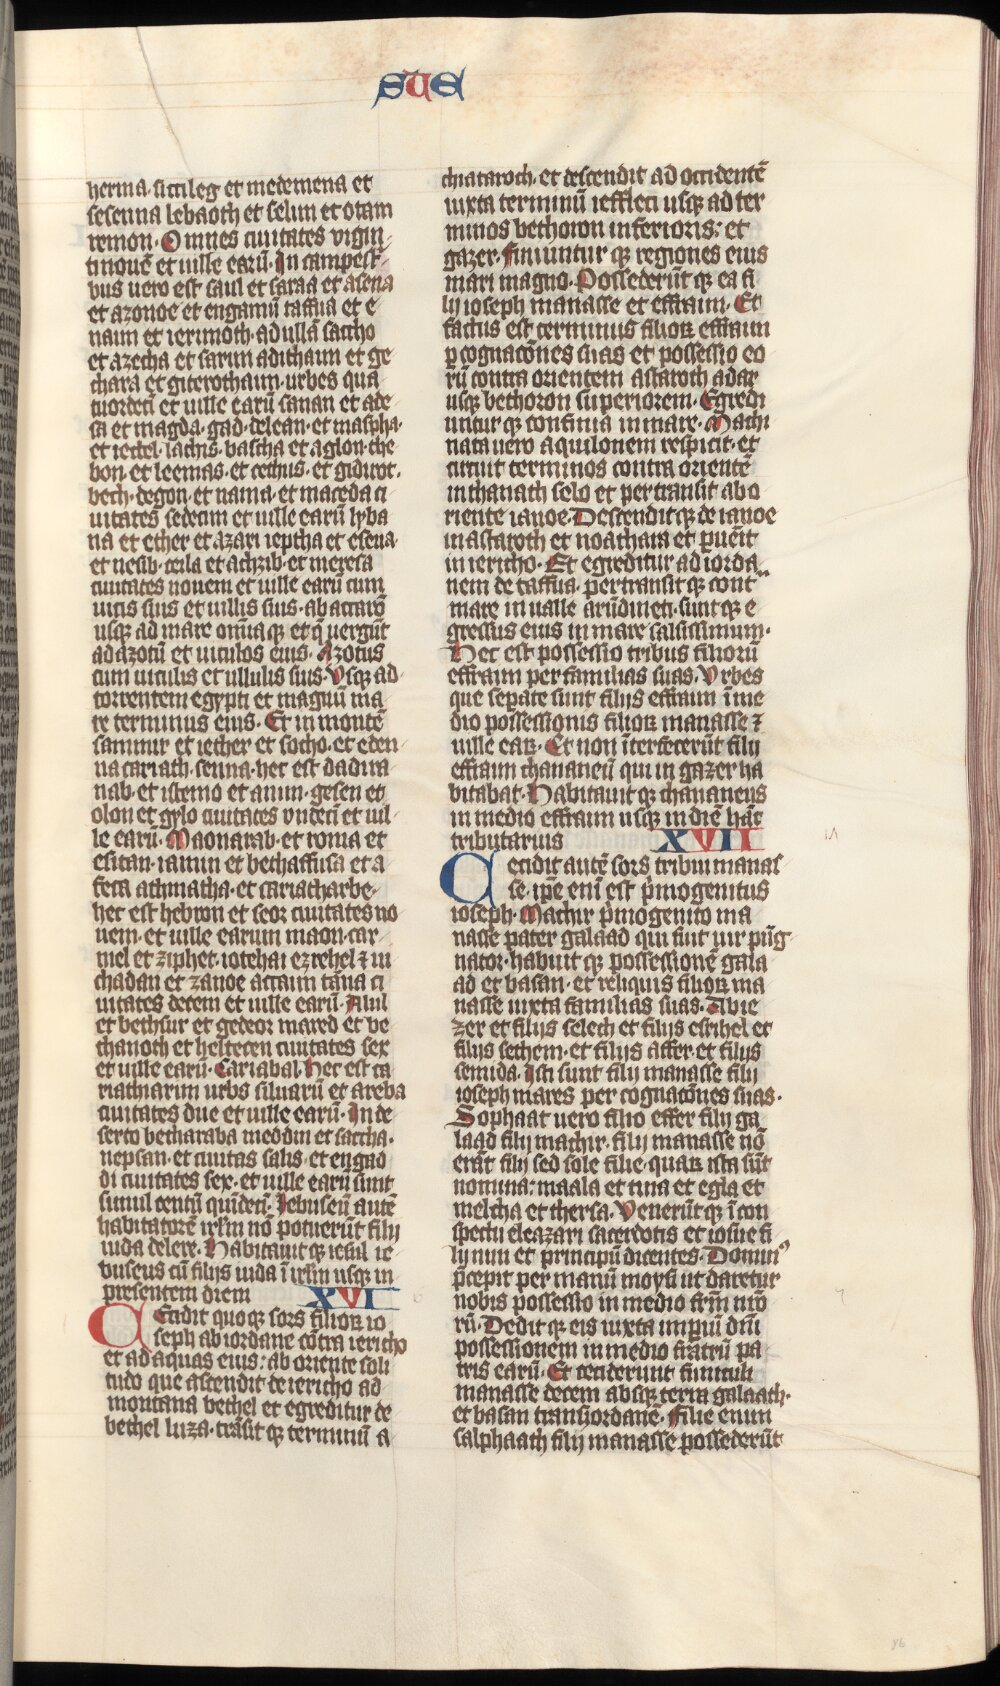 SUE
herma. siceleg et medemena et
sesenna lebaoth et selim et otam
remon. Omnes ciuitates vigin
tinouē et uille earū. In campest̄
bus uero est saul et saraa et asena
et azonoe et engannū taffua et e
naim et ierimoth. adullā saccho
et azecha et sarim adithaim et ge
thara et giterothaim. urbes qua
tuordeci et uille earū sanan et ade
sa et magda. gad. delean. et maspha.
et iectel. lachis. bascha et aglon. che
bon. et leemas. et cethus. et gidirot.
bech. degon. et nama. et maceda ci
uitates sedecim et uille earū lyba
na et ether et azari ieptha et esena
et nesib. ceila et achzib. et meresa
ciuitates nouem et uille earū cum
uicis suis et uillis suis. ab accarō
usqꝫ ad mare omīa qꝫ et q̄ uergūt
ad azotū et uiculos eius. Azotus
cum uiculis et ullulis suis. Vsqꝫ ad
torrentem egypti et magnū ma
re terminus eius. Et in montē
sammir et iether et socho. et eden
na cariath. senna. hec est dadira
nab. et istemo et anim. gesen et
olon et gylo ciuitates vndeci et uil
le earū. Maonarab. et roma et
esitan. ianim et bethaffusa et a
feca athmatha. et cariatharbe.
hec est hebron et seor ciuitates no
uem. et uille earum maon. car
mel et ziphet. iotehai ezrehel ⁊ iu
chadan et zanoe accaim tāna ci
uitates decem et uille earū. Alul
et bethsur et gedeor mared et be
thanoth et heltecen ciuitates sex
et uille earū. Cariabal. Hec est ca
riathiarim urbs siluarū et areba
ciuitates due et uille earū. In de
serto betharaba meddin et saccha.
nepsan. et ciuitas salis. et engad
di ciuitates sex. et uille earū sunt
simul centū quīdeci. Iebuseū autē
habitatorē irl̄m nō potuerūt filij
iuda delere. Habitauit qꝫ iebus ie
buseus cū filijs iuda ī irl̄m usqꝫ in
presentem diem XVI
Cecidit quoqꝫ sors filioꝝ io
seph ab iordane cōtra iericho
et ad aquas eius: ab oriente soli
tudo que ascendit de iericho ad
montana bethel et egreditur de
bethel luza. trāsit qꝫ terminū a
chiataroth. et descendit ad occidentē
iuxta terminū ieffleti usqꝫ ad ter
minos bethoron inferioris: et
gazer. Finiuntur qꝫ regiones eius
mari magno. Possederūt qꝫ ea fi
lij ioseph manasse et effraim. Et
factus est terminus filioꝝ effraim
ꝑ cognacōnes suas et possessio eo
rū contra orientem astaroth adar
usqꝫ bethoron superiorem. Egredi
untur qꝫ confinia in mare. Machi
nata uero aquilonem respicit. et
circuit terminos contra orientē
in thanath selo et pertransit ab o
riente ianoe. Descendit qꝫ de ianoe
in astaroth et noathara et ꝑuēit
in iericho. Et egreditur ad iorda
nem de taffua. pertransit qꝫ cont̄
mare in ualle arūdineti. sunt qꝫ e
gressus eius in mare salsissimum.
Hec est possessio tribus filiorū
effraim per familias suas. Vrbes
que sepate sunt filijs effraim ī me
dio possessionis filioꝝ manasse ⁊
uille eaꝝ. Et non īterfecerūt filij
effraim chananeū qui in gazer ha
bitabat. Habitauit qꝫ chananeus
in medio effraim usqꝫ in diē hāc
tributarius XVII
Cecidit autē sors tribui manas
se. ip̄e eni est p̄mogenitus
ioseph. Machir p̄mogenito ma
nasse pater galaad qui fuit uir pūg
nator. habuit qꝫ possessionē gala
ad et basan. et reliquis filioꝝ ma
nasse iuxta familias suas. Abie
zer et filijs selech et filijs esrihel et
filijs sechem. et filijs affer. et filijs
semida. Isti sunt filij manasse filij
ioseph mares per cognacōnes suas.
Sophaat uero filio effer filij ga
laad filij machir. filij manasse nō
erāt filij sed sole filie. quaꝝ ista sūt
nomina: maala et tina et egla et
melcha et thersa. Venerūt qꝫ ī con
spectu eleazari sacerdotis et iosue fi
lij nun et principū dicentes. Domin⁹
p̄cepit per manū moysi ut daretur
nobis possessio in medio fr̄m nr̄o
rū. Dedit qꝫ eis iuxta impiū dn̄i
possessionem in medio fratrū pa
tris earū. Et ceciderunt funiculi
manasse decem absqꝫ terra galaath.
et basan transiordanē. Filie enim
salphaath filij manasse possederūt